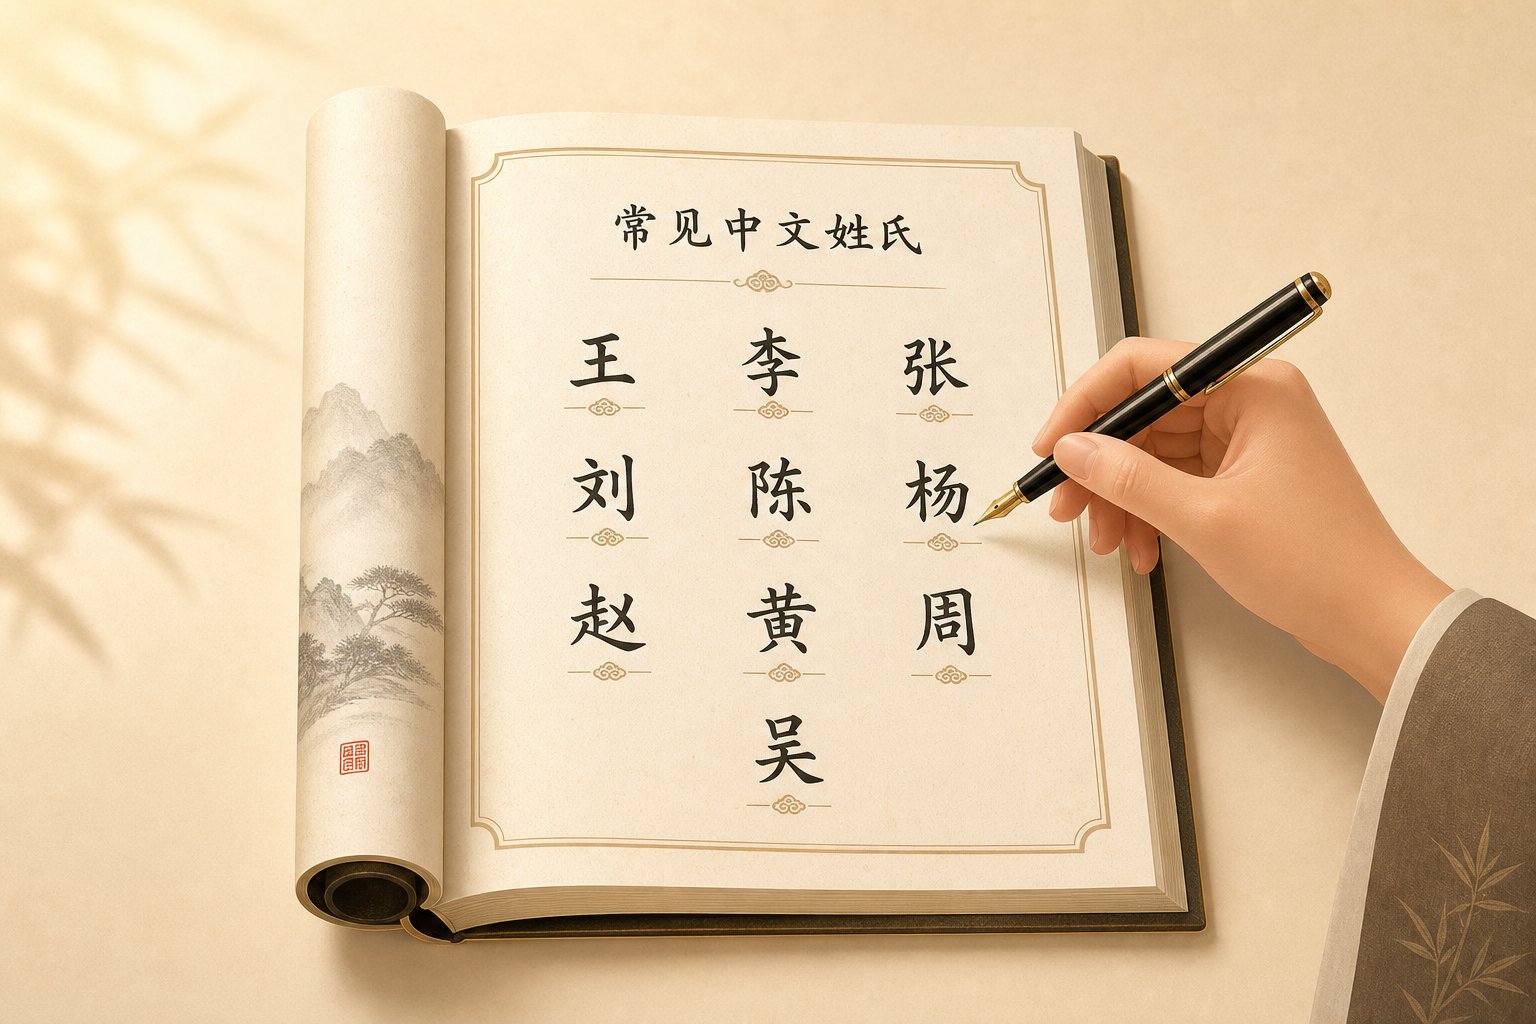 常见中文姓氏
王 李 张
刘 陈 杨
赵 黄 周
吴